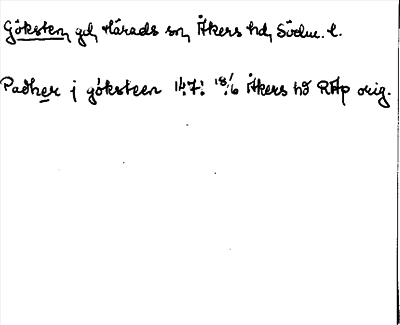 Göksten, gd, Härads sn, Åkers hd, Södm. l.
Padher j göksteen 1474 18/6 Åkers hd RAp orig.